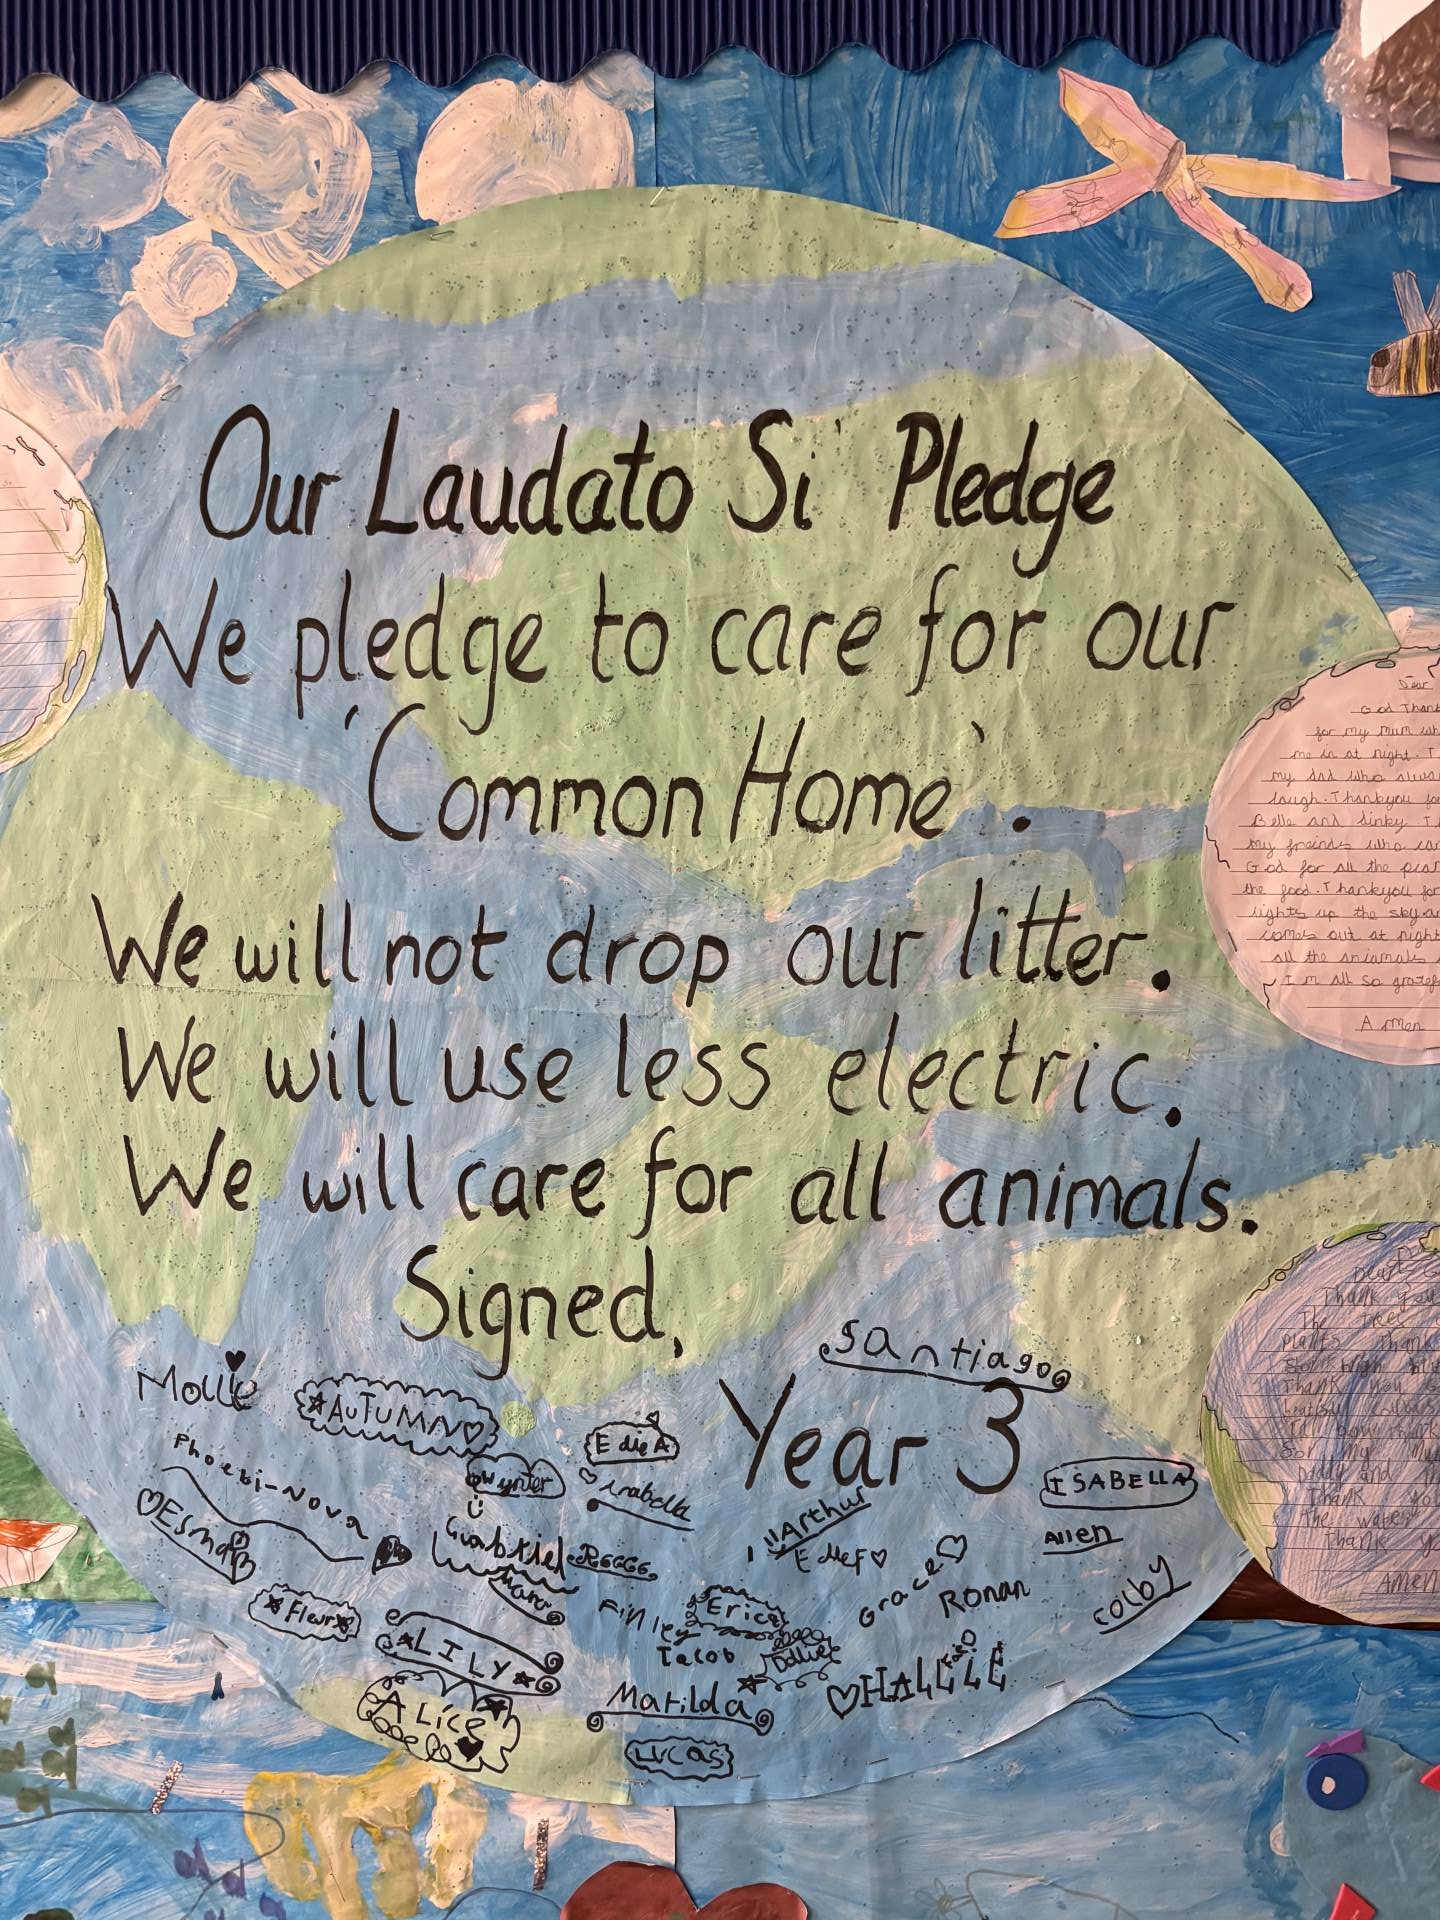 Our Laudato Si' Pledge
We pledge to care for our
'Common Home'.
We will not drop our litter.
We will use less electric.
We will care for all animals.
Signed,
Year 3
Santiago
Mollie
AUTUMN
Edie A
Phoebi-Nova
Wynter
Isabella
ISABELLA
Esma
Gabriel
Arthur
Edie F
Allen
Grace
RONAN
Colby
Fleur
Finley
Erica
Jacob
LILY
Dallie
HALLIE
ALice
Matilda
LUCAS
Dear
God Thank
for my mum wh
me in at night. T
my dad who alwa
laugh. Thankyou for
Belle and dinky T
my freinds who
God for all the
the food. Thankyou for
lights up the sky
comes out at night
all the aniamals
I m all so gratef
Amen
Dear
Thank you
The trees
plants thank
Thank you
for my Mum
Daddy and
Thank you
the water
Thank y
AMEN